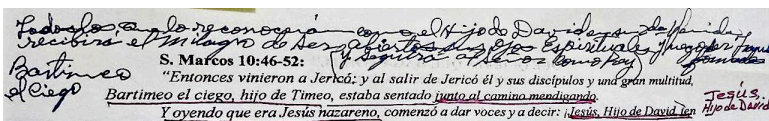 Todo el que lo reconocerá como el Hijo de David en su 2da Venida,
recibirá el Milagro de Ser abiertos sus ojos Espirituales,
y seguirá al Señor como fue
Bartimeo
el Ciego
S. Marcos 10:46-52:
"Entonces vinieron a Jericó; y al salir de Jericó él y sus discípulos y una gran multitud,
Bartimeo el ciego, hijo de Timeo, estaba sentado junto al camino mendigando.
Y oyendo que era Jesús nazareno, comenzó a dar voces y a decir: ¡Jesús, Hijo de David, ten
Jesús,
Hijo de David